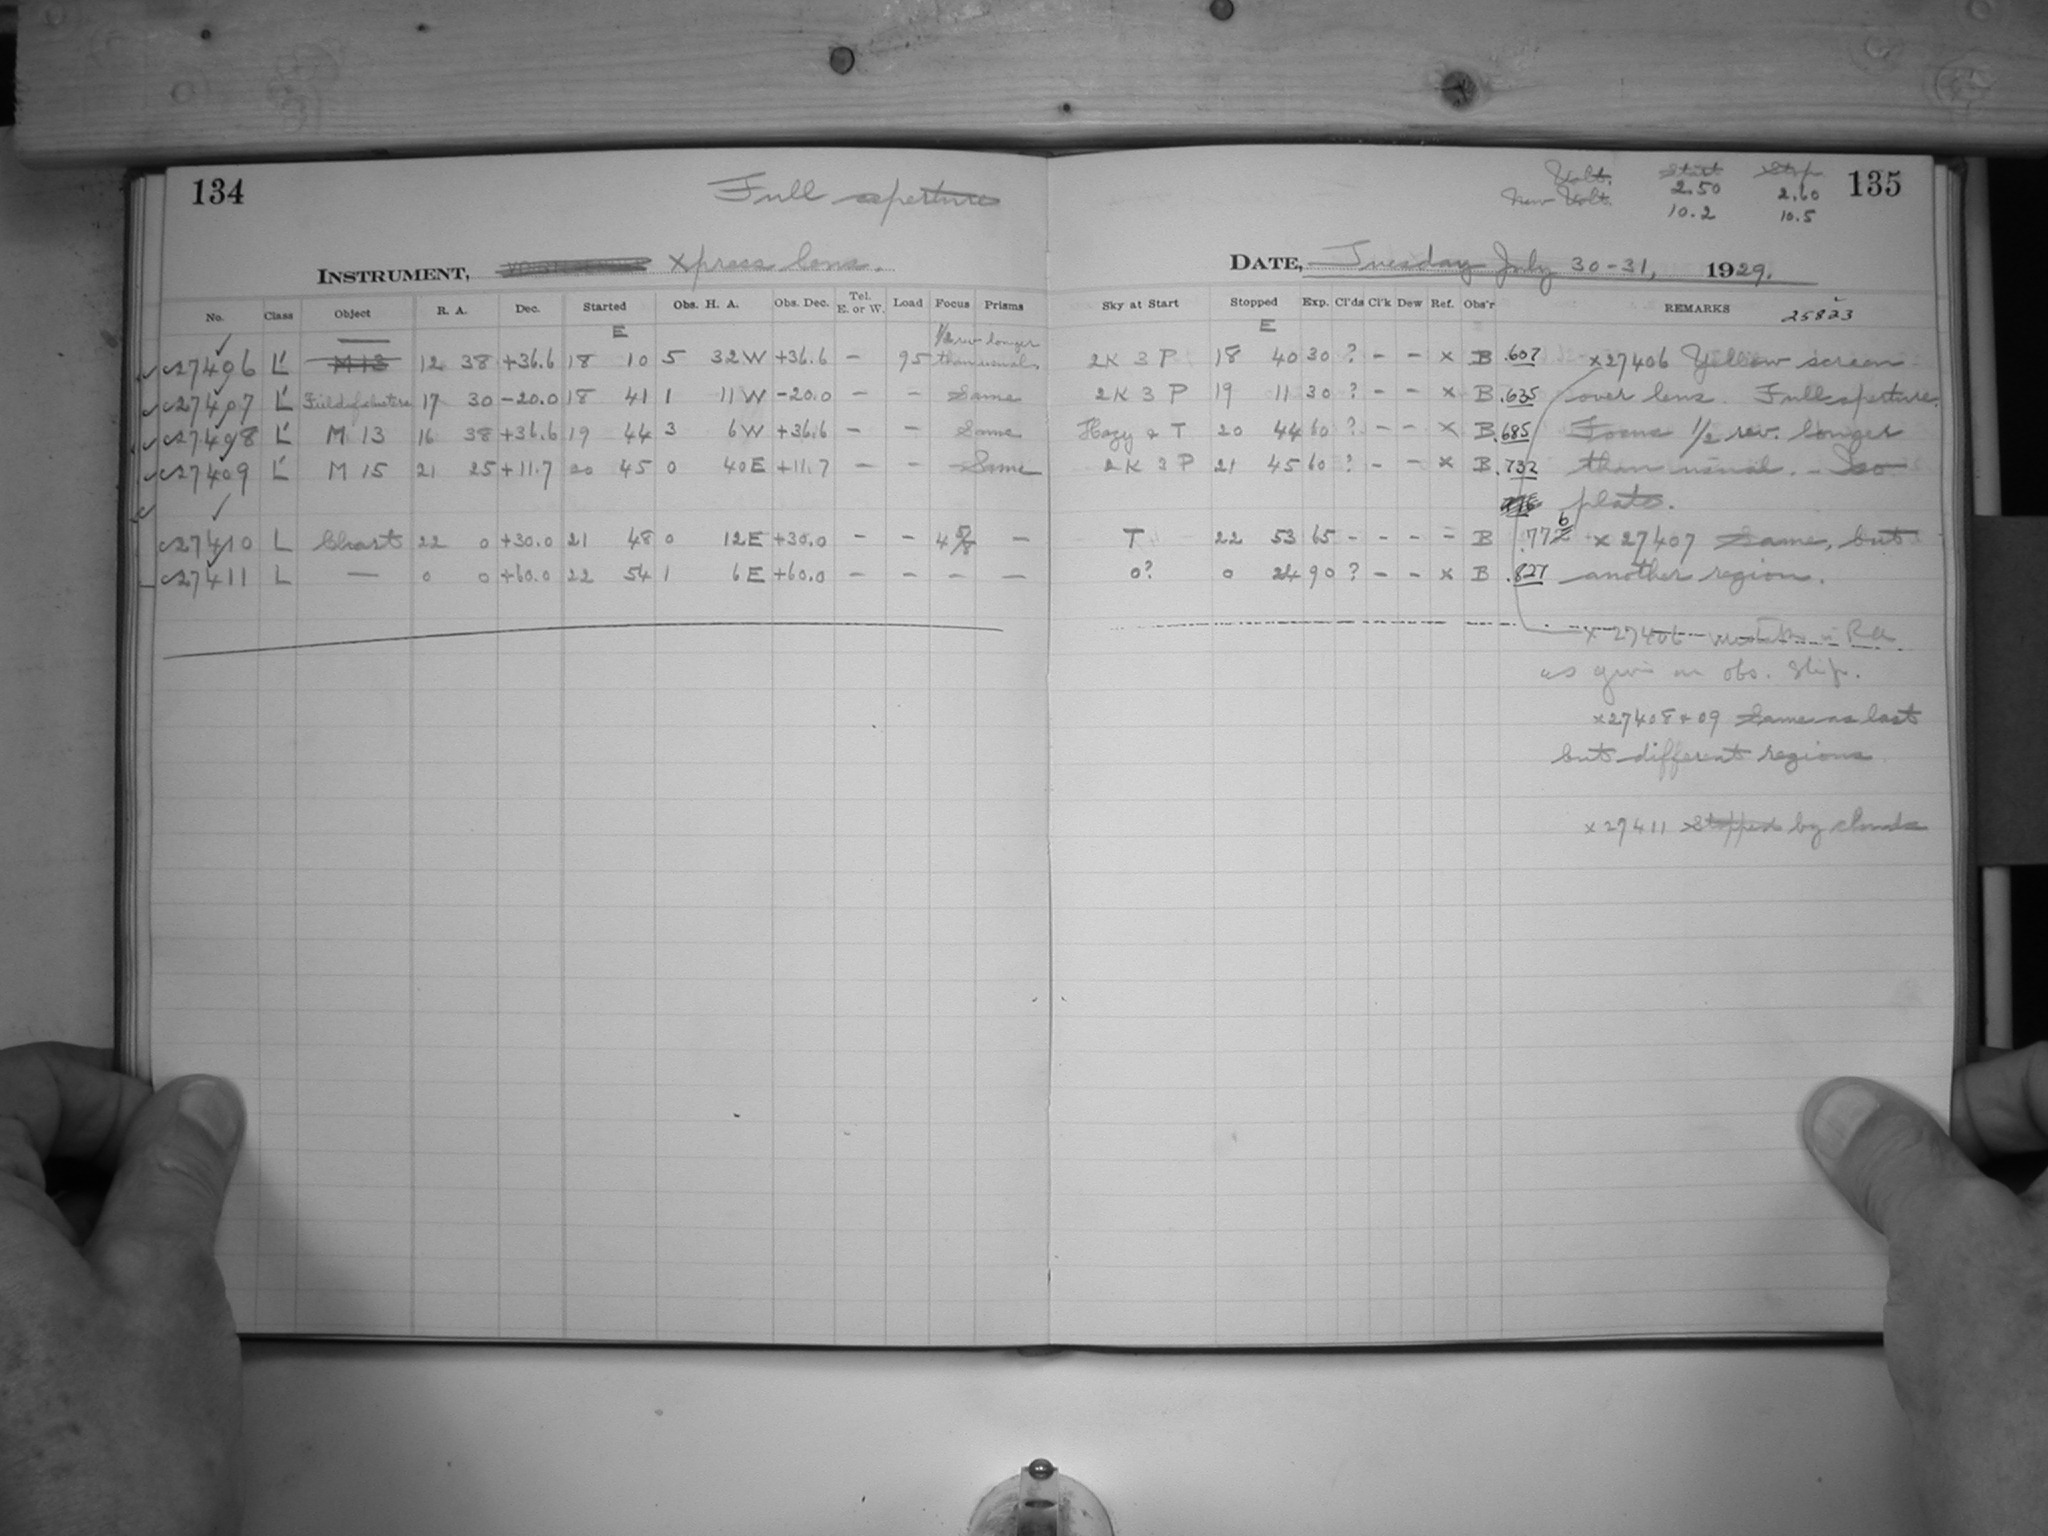 134
Full aperture
INSTRUMENT, Xpress lens.
No. Class Object R. A. Dec. Started Obs. H. A. Obs. Dec. Tel. E. or W. Load Focus Prisms
E
1/2 rev longer
c27406 L M 13 12 38 +36.6 18 10 5 32 W +36.6 – 95 than usual.
c27407 L Field of clusters 17 30 –20.0 18 41 1 11 W –20.0 – – Same
c27408 L M 13 16 38 +36.6 19 44 3 6 W +36.6 – – Same
c27409 L M 15 21 25 +11.7 20 45 0 40 E +11.7 – – Same
c27410 L Chart 22 0 +30.0 21 48 0 12 E +30.0 – – 4 5/8 –
c27411 L — 0 0 +60.0 22 54 1 6 E +60.0 – – – –
Volt. Start Stop 135
2.50 2.60
New Volt. 10.2 10.5
DATE, Tuesday July 30-31, 1929.
Sky at Start Stopped Exp. Cl'ds Cl'k Dew Ref. Obs'r REMARKS 25823
E
2K 3 P 18 40 30 ? – – x B .607 x27406 Yellow screen
2K 3 P 19 11 30 ? – – x B .635 over lens. Full aperture.
Hazy & T 20 44 60 ? – – x B .685 Focus 1/2 rev. longer
2K 3 P 21 45 60 ? – – x B .732 than usual. – Iso
plate.
T 22 53 65 – – – – B .776 x 27407 Same, but
0? 0 24 90 ? – – x B .827 another region.
x 27406 in RA
as given on obs. slip.
x27408 + 09 Same as last
but different regions
x27411 Stopped by clouds